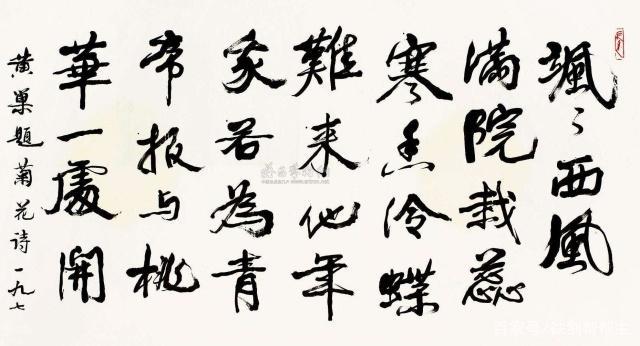 颯〻西風
滿院栽蕊
寒香冷蝶
難来他年
我若為青
帝报与桃
華一處開
黄巢題菊花诗一九七
百家号/